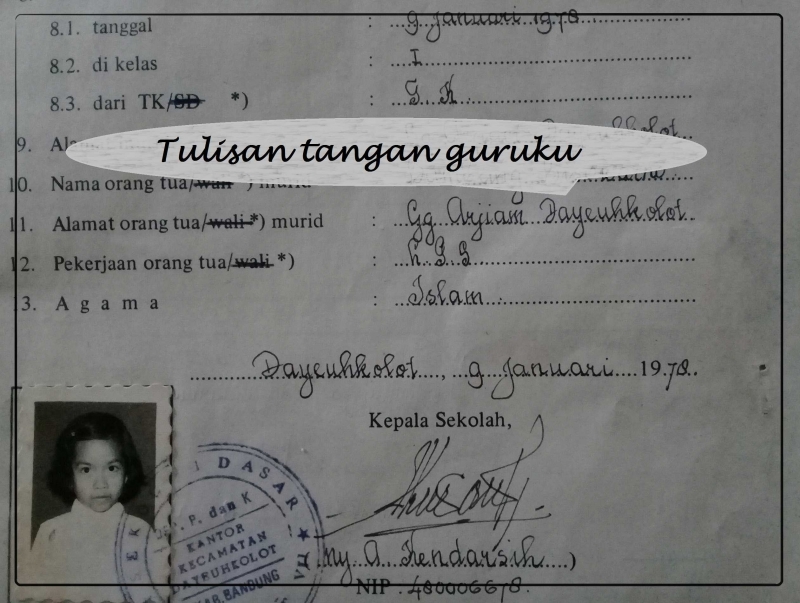 8.1. tanggal : 9 Januari 1978
8.2. di kelas : I
8.3. dari TK/SD *) : T.K
9. Al
Tulisan tangan guruku
10. Nama orang tua/wali *) murid
11. Alamat orang tua/wali *) murid : Gg Arjiam Dayeuhkolot
12. Pekerjaan orang tua/wali *) :
13. Agama : Islam
Dayeuhkolot, 9 Januari 1978.
Kepala Sekolah,
DASAR
P. dan K
KANTOR
KECAMATAN
DAYEUHKOLOT
KAB. BANDUNG
Ny A. Hendarsih )
NIP. 480006678.